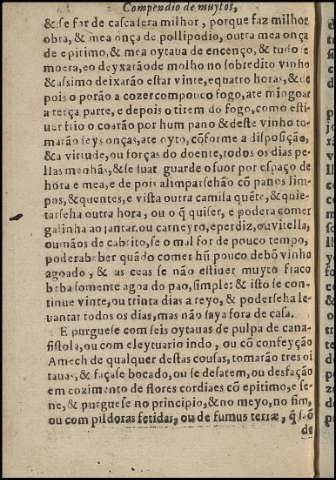 Compendio de muytos,
& se for de cascalera milhor, porque faz milhor
obra, & mea onça de pollipodio, outra mea onça
de epitimo, & mea oytaua de encenço, & tudo se
moera, eo deyxarão de molho no sobredito vinho
& assimo deixarão estar vinte, equatro horas, & de
pois o porão a cozer com pouco fogo, ate mingoar
a terça parte, e depois o tirem do fogo, como esti-
uer frio o coarão por hum pano & deste vinho to-
marão seys onças, ate oyto, cõforme a disposição,
& a virtude, ou forças do doente, todos os dias pe-
llas manhãs, & se suar guarde o suor por espaço de
hora e mea, e de pois alimparsehão cõ panos lim-
pos, & quentes, e vista outra camisa quẽte, & quie-
tarseha outra hora, ou o q̃ quiser, e poderà comer
galinha ao jantar. ou carneyro, eperdiz, ou vitella,
ou mãos de cabrito, se o mal for de pouco tempo,
poderabeber quãdo comer hũ pouco debõ vinho
agoado, & as ceas se não estiuer muyto fraco
beba somente agoa do pao, simple: & isto se con-
tinue vinte, ou trinta dias a reyo, & poderseha le-
uantar todos os dias, mas não saya fora de casa.
E purguese com seis oytauas de pulpa de cana-
fistola, ou com eleytuario indo, ou cõ confeyção
Amech de qualquer destas cousas, tomarão tres oi
tauas, & façase bocado, ou se desatem, ou desfação
em cozimento de flores cordiaes cõ epitimo, e se-
ne, & purguese no principio, & no meyo, no fim,
ou com pildoras fetidas, ou de fumus terræ, q̃ são
de